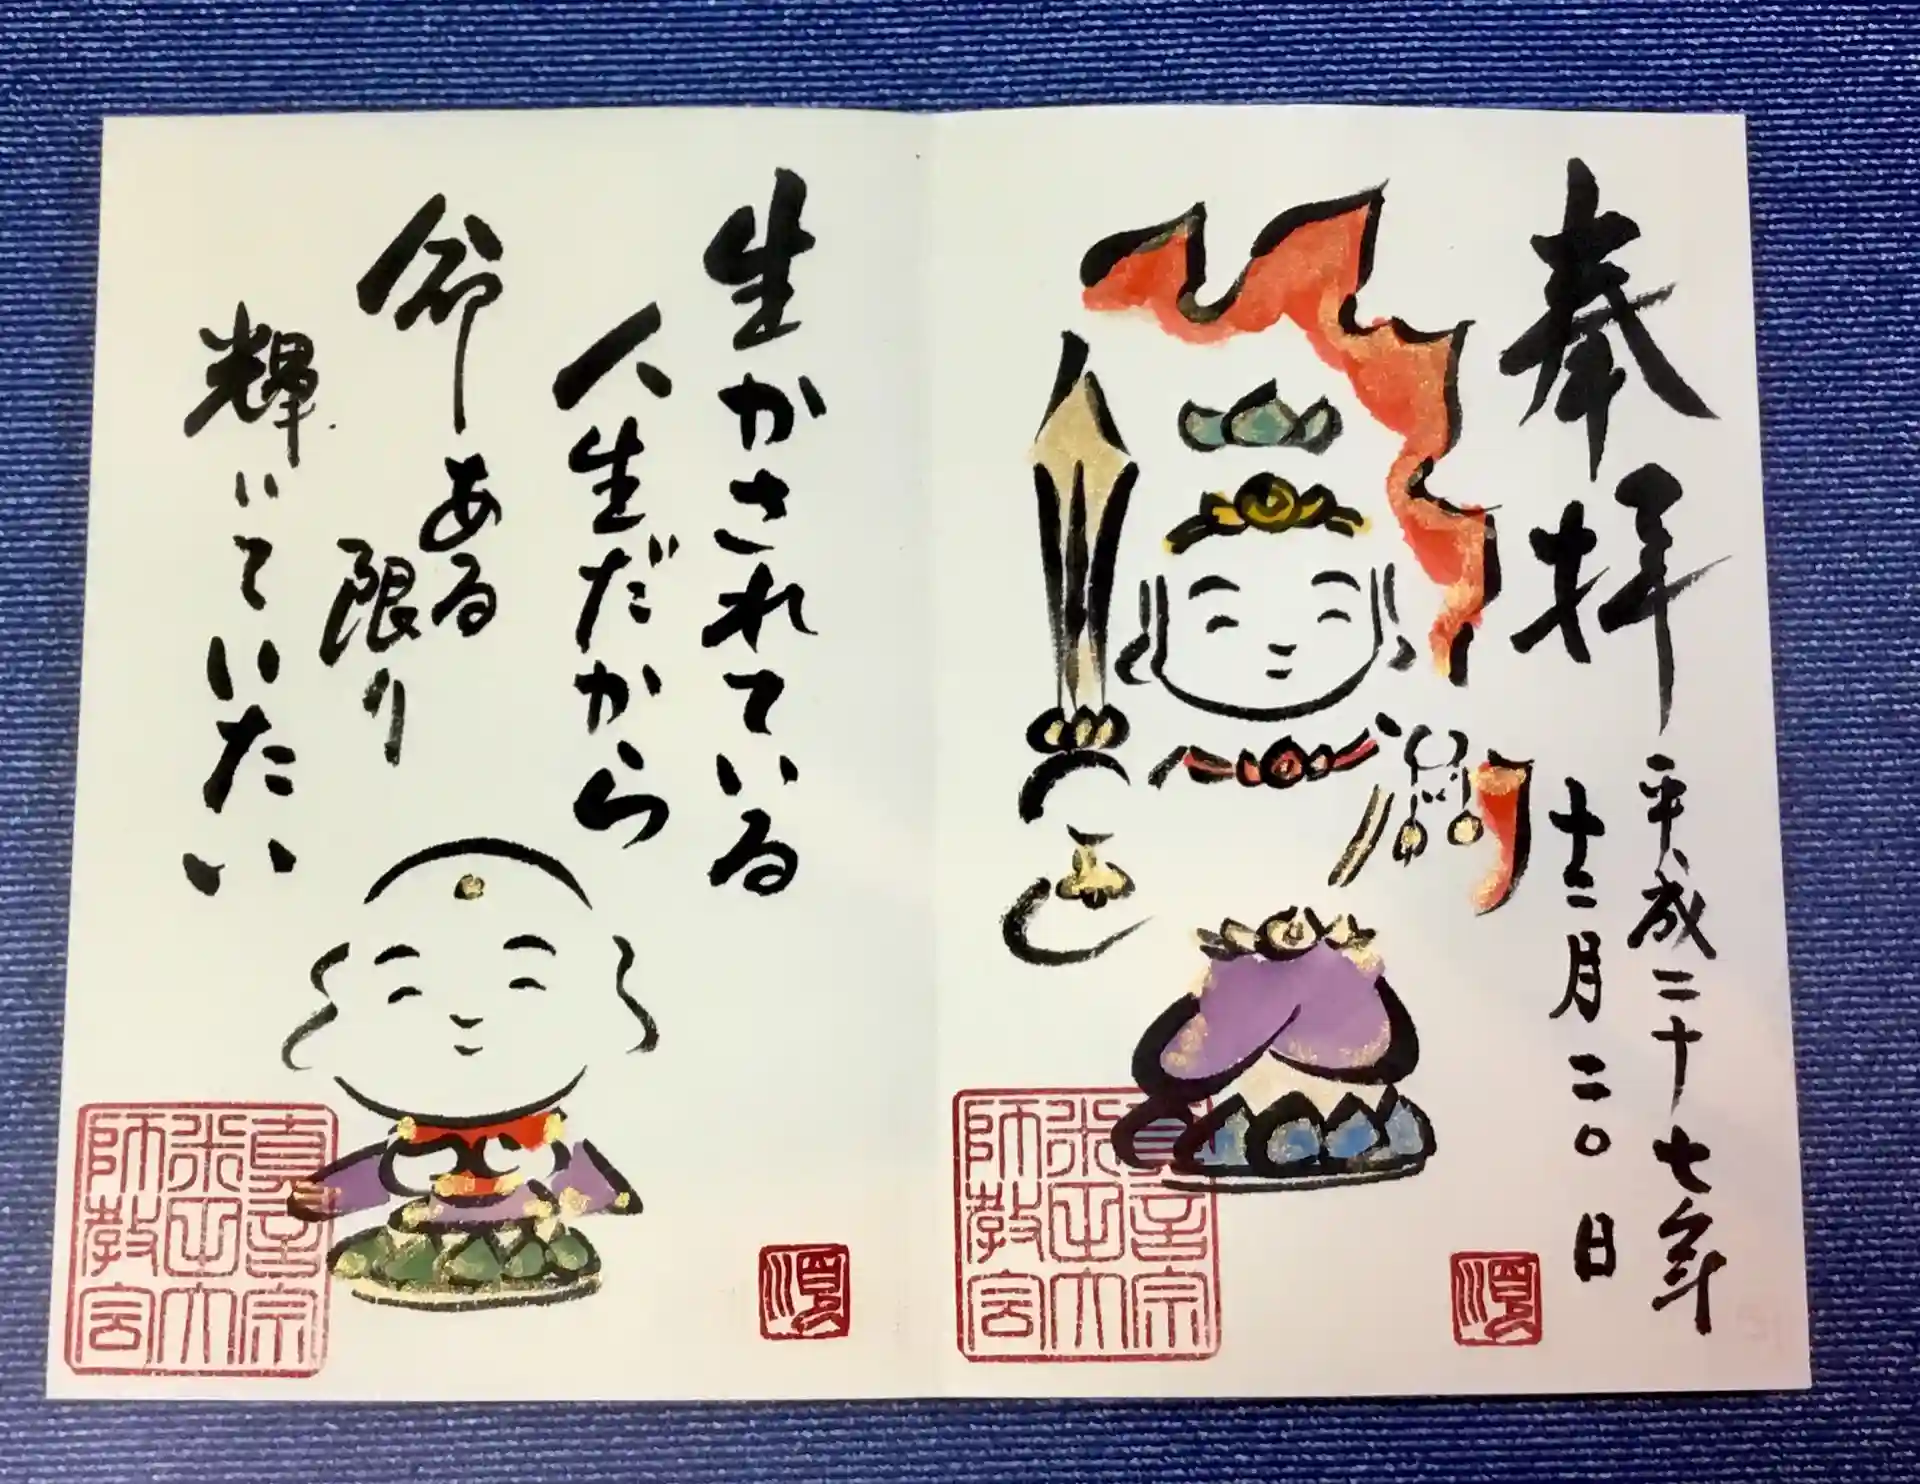 奉拝
平成二十七年
十二月二〇日
真言宗
米山大
師教会
生かされている
人生だから
命ある
限り
輝いていたい
真言宗
米山大
師教会